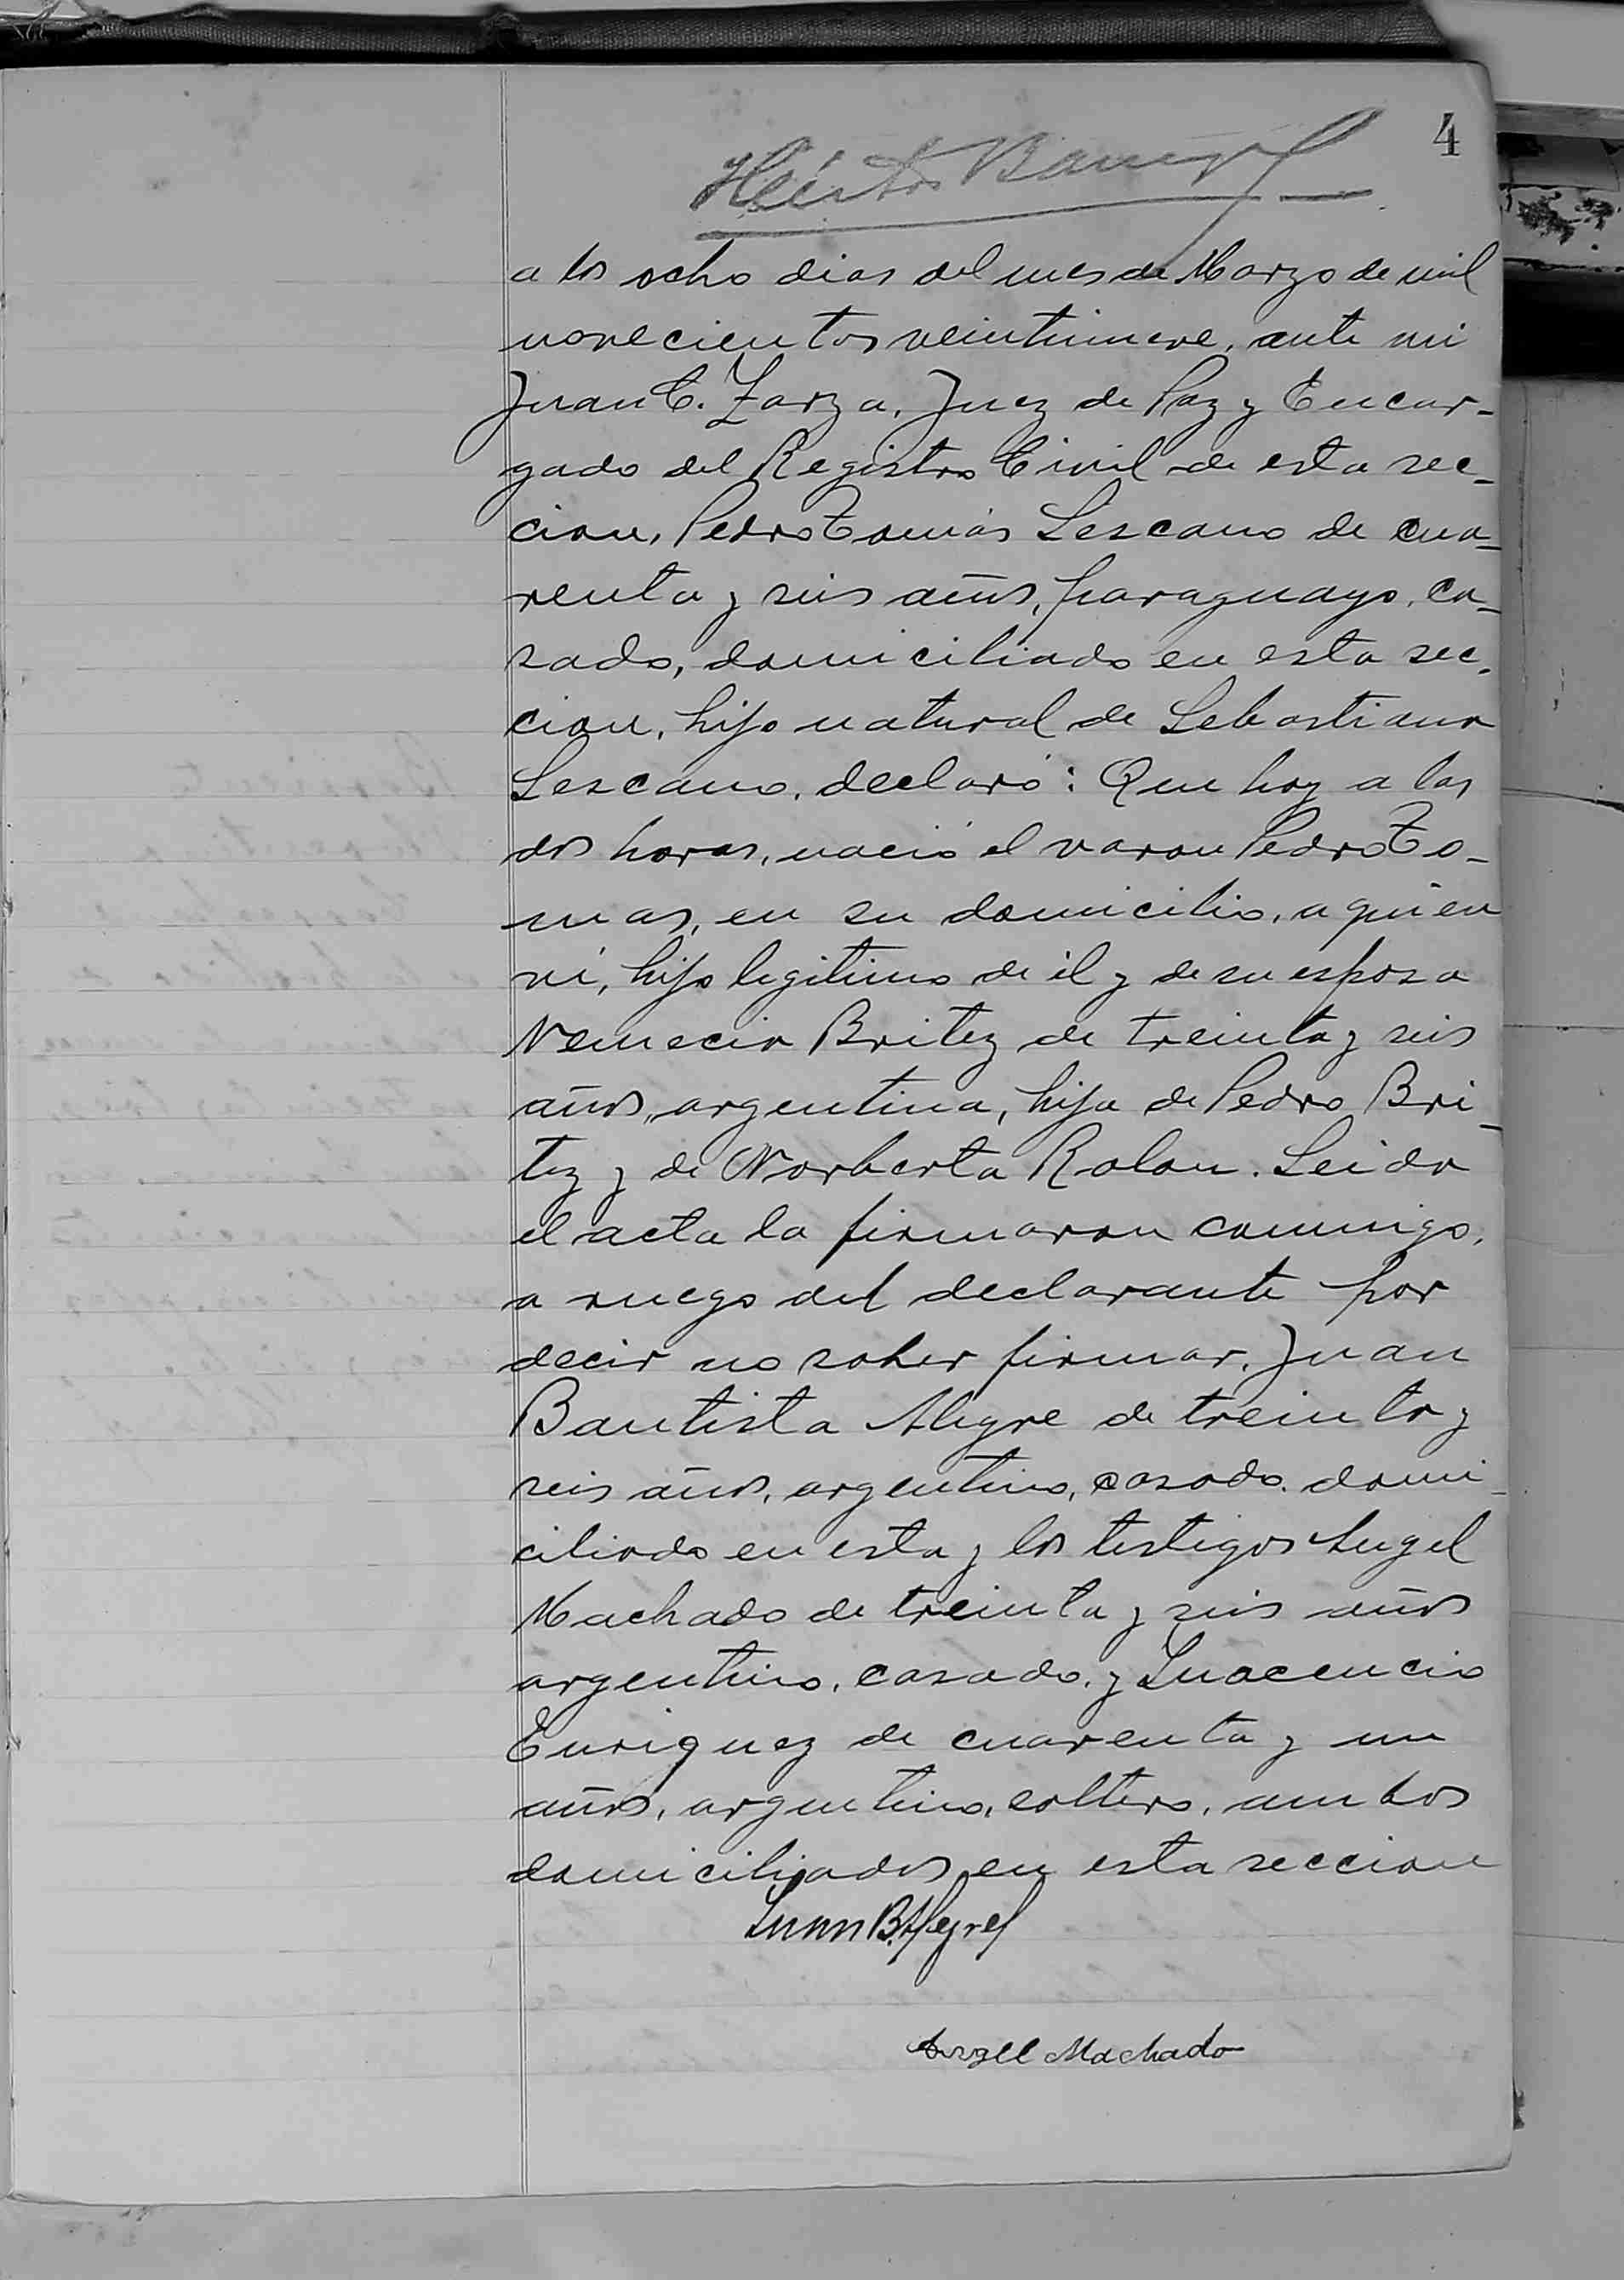 4
Héctor
a los ocho dias del mes de Marzo de mil
novecientos veintinueve, ante mi
Juan C. Zarza, Juez de Paz y Encar-
gado del Registro Civil de esta sec-
cion, Pedro Tomás Lescano de cua-
renta y seis años, paraguayo, ca-
sado, domiciliado en esta sec-
cion, hijo natural de Sebastiana
Lescano, declaró: Que hoy a las
dos horas, nació el varon Pedro To-
mas, en su domicilio, a quien
vi, hijo legitimo de él y de su esposa
Nemecia Britez de treinta y seis
años, argentina, hija de Pedro Bri-
tez y de Norberta Rolon. Leida
el acta la firmaron conmigo,
a ruego del declarante por
decir no saber firmar, Juan
Bautista Alegre de treinta y
seis años, argentino, casado, domi-
ciliado en esta y los testigos Angel
Machado de treinta y seis años
argentino, casado, y Inocencio
Enriquez de cuarenta y un
años, argentino, soltero, ambos
domiciliados en esta seccion
Juan B. Alegre
Angel Machado